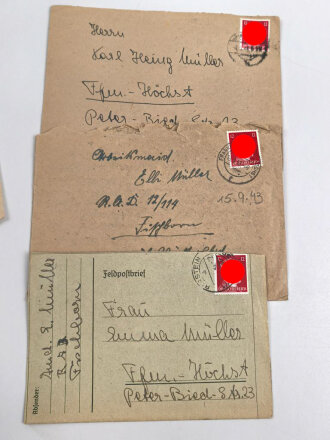 Herrn
Karl Heinz Müller
Ffm.-Höchst
Peter-Bied-Str. 23
Arbeitsmaid
Elli Müller
R.A.D. 12/114
Fischborn
15.9.43
Feldpostbrief
Frau
Emma Müller
Ffm.-Höchst
Peter-Bied-Str. 23
Absender:
E. Müller
RAD
Fischborn